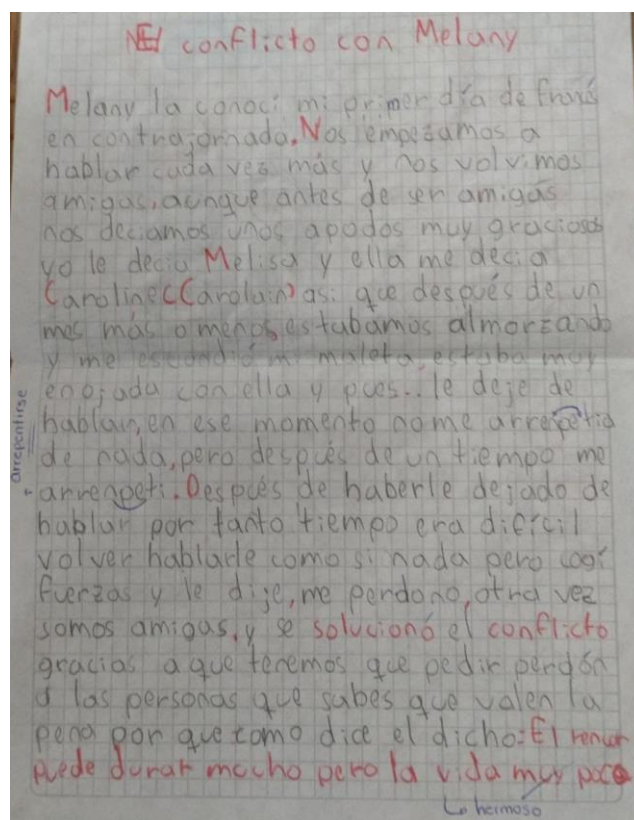 El conflicto con Melany
Melany la conoci mi primer día de francé
en contrajornada. Nos empesamos a
hablar cada ves más y nos volvimos
amigas, aunque antes de ser amigas
nos deciamos unos apodos muy graciosos
yo le decia Melisa y ella me decia
Caroline (Carolain) asi que después de un
mes más o menos, estubamos almorzando
y me escondió mi maleta, estaba muy
enojada con ella y pues.. le deje de
hablar, en ese momento no me arrepetia
de nada, pero después de un tiempo me
arrenpeti. Después de haberle dejado de
hablar por tanto tiempo era difícil
volver hablarle como si nada pero cogí
fuerzas y le dije, me perdono, otra vez
somos amigas, y se solucionó el conflicto
gracias a que tenemos que pedir perdón
a las personas que sabes que valen la
pena por que como dice el dicho: El rencor
puede durar mucho pero la vida muy poco
Lo hermoso
arrepentirse